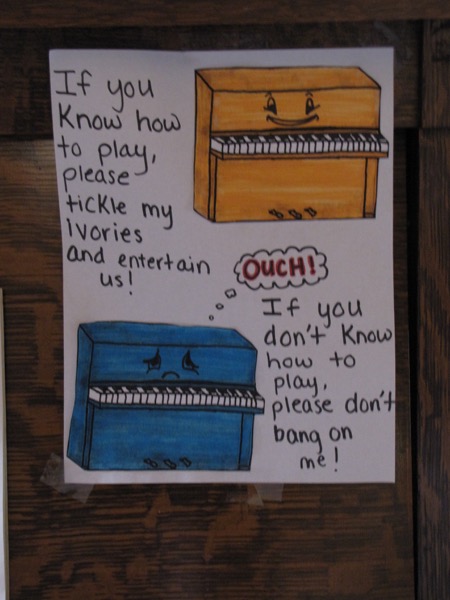 If you
Know how
to play,
please
tickle my
Ivories
and entertain
us!
OUCH!
If you
don't Know
how to
play,
please don't
bang on
me!